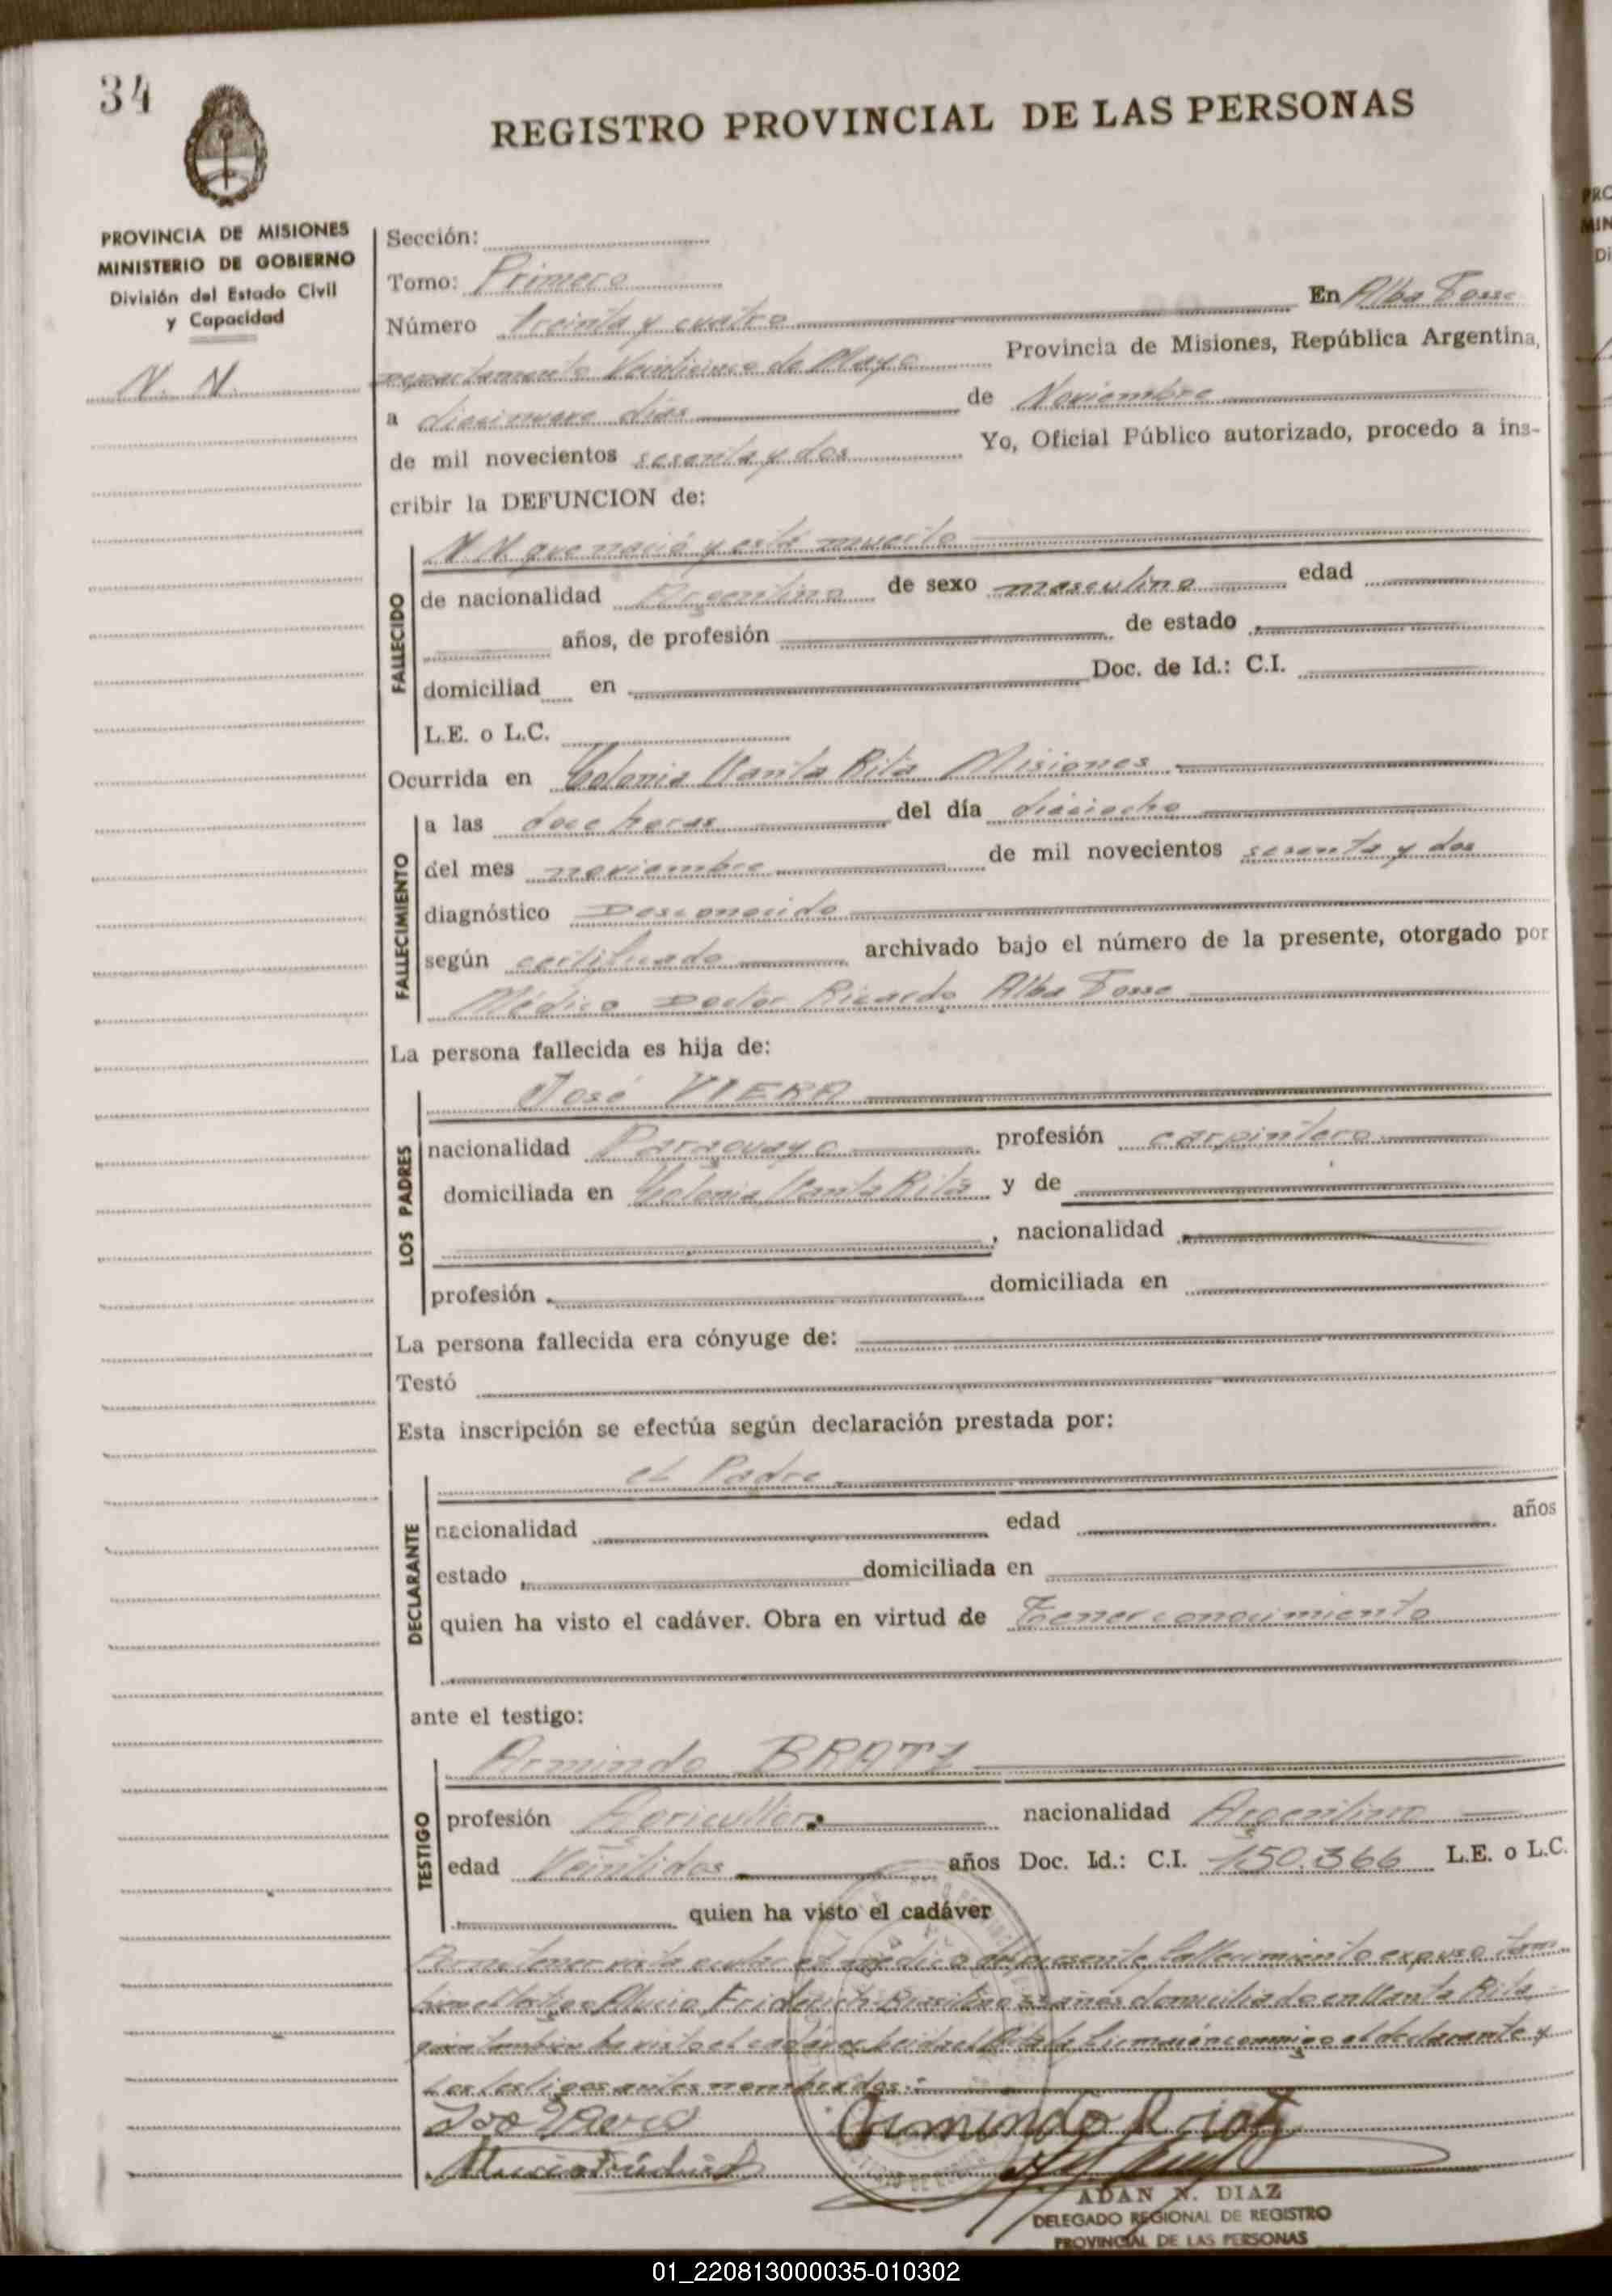 34
REGISTRO PROVINCIAL DE LAS PERSONAS
PROVINCIA DE MISIONES
MINISTERIO DE GOBIERNO
División del Estado Civil
y Capacidad
N. N.
Sección:
Tomo: Primero
Número Treinta y cuatro En Alba Posse
departamento Veinticinco de Mayo Provincia de Misiones, República Argentina,
a diecinueve días de Noviembre
de mil novecientos sesenta y dos Yo, Oficial Público autorizado, procedo a ins-
cribir la DEFUNCION de:
N N que nació y está muerto
FALLECIDO
de nacionalidad Argentina de sexo masculino edad
años, de profesión de estado
domiciliad en Doc. de Id.: C.I.
L.E. o L.C.
Ocurrida en Colonia Santa Rita Misiones
FALLECIMIENTO
a las doce horas del día dieciocho
del mes noviembre de mil novecientos sesenta y dos
diagnóstico Desconocido
según certificado archivado bajo el número de la presente, otorgado por
Médico Doctor Ricardo Alba Posse
La persona fallecida es hija de:
José VIERA
LOS PADRES
nacionalidad Paraguaya profesión carpintero
domiciliada en Colonia Santa Rita y de
, nacionalidad
profesión domiciliada en
La persona fallecida era cónyuge de:
Testó
Esta inscripción se efectúa según declaración prestada por:
el Padre
DECLARANTE
nacionalidad edad años
estado domiciliada en
quien ha visto el cadáver. Obra en virtud de Tener conocimiento
ante el testigo:
Armindo BRATZ
TESTIGO
profesión Agricultor nacionalidad Argentina
edad Veintidos años Doc. Id.: C.I. 150.366 L.E. o L.C.
quien ha visto el cadáver
médico del presente fallecimiento expuso tam
bien el testigo Friderich Brasilino años domiciliado en Santa Rita
quien tambien ha visto el cadáver leida el Acta la firman conmigo el declarante y
Los testigos antes nombrados.-
Armindo
ADAN N. DIAZ
DELEGADO REGIONAL DE REGISTRO
PROVINCIAL DE LAS PERSONAS
01_220813000035-010302